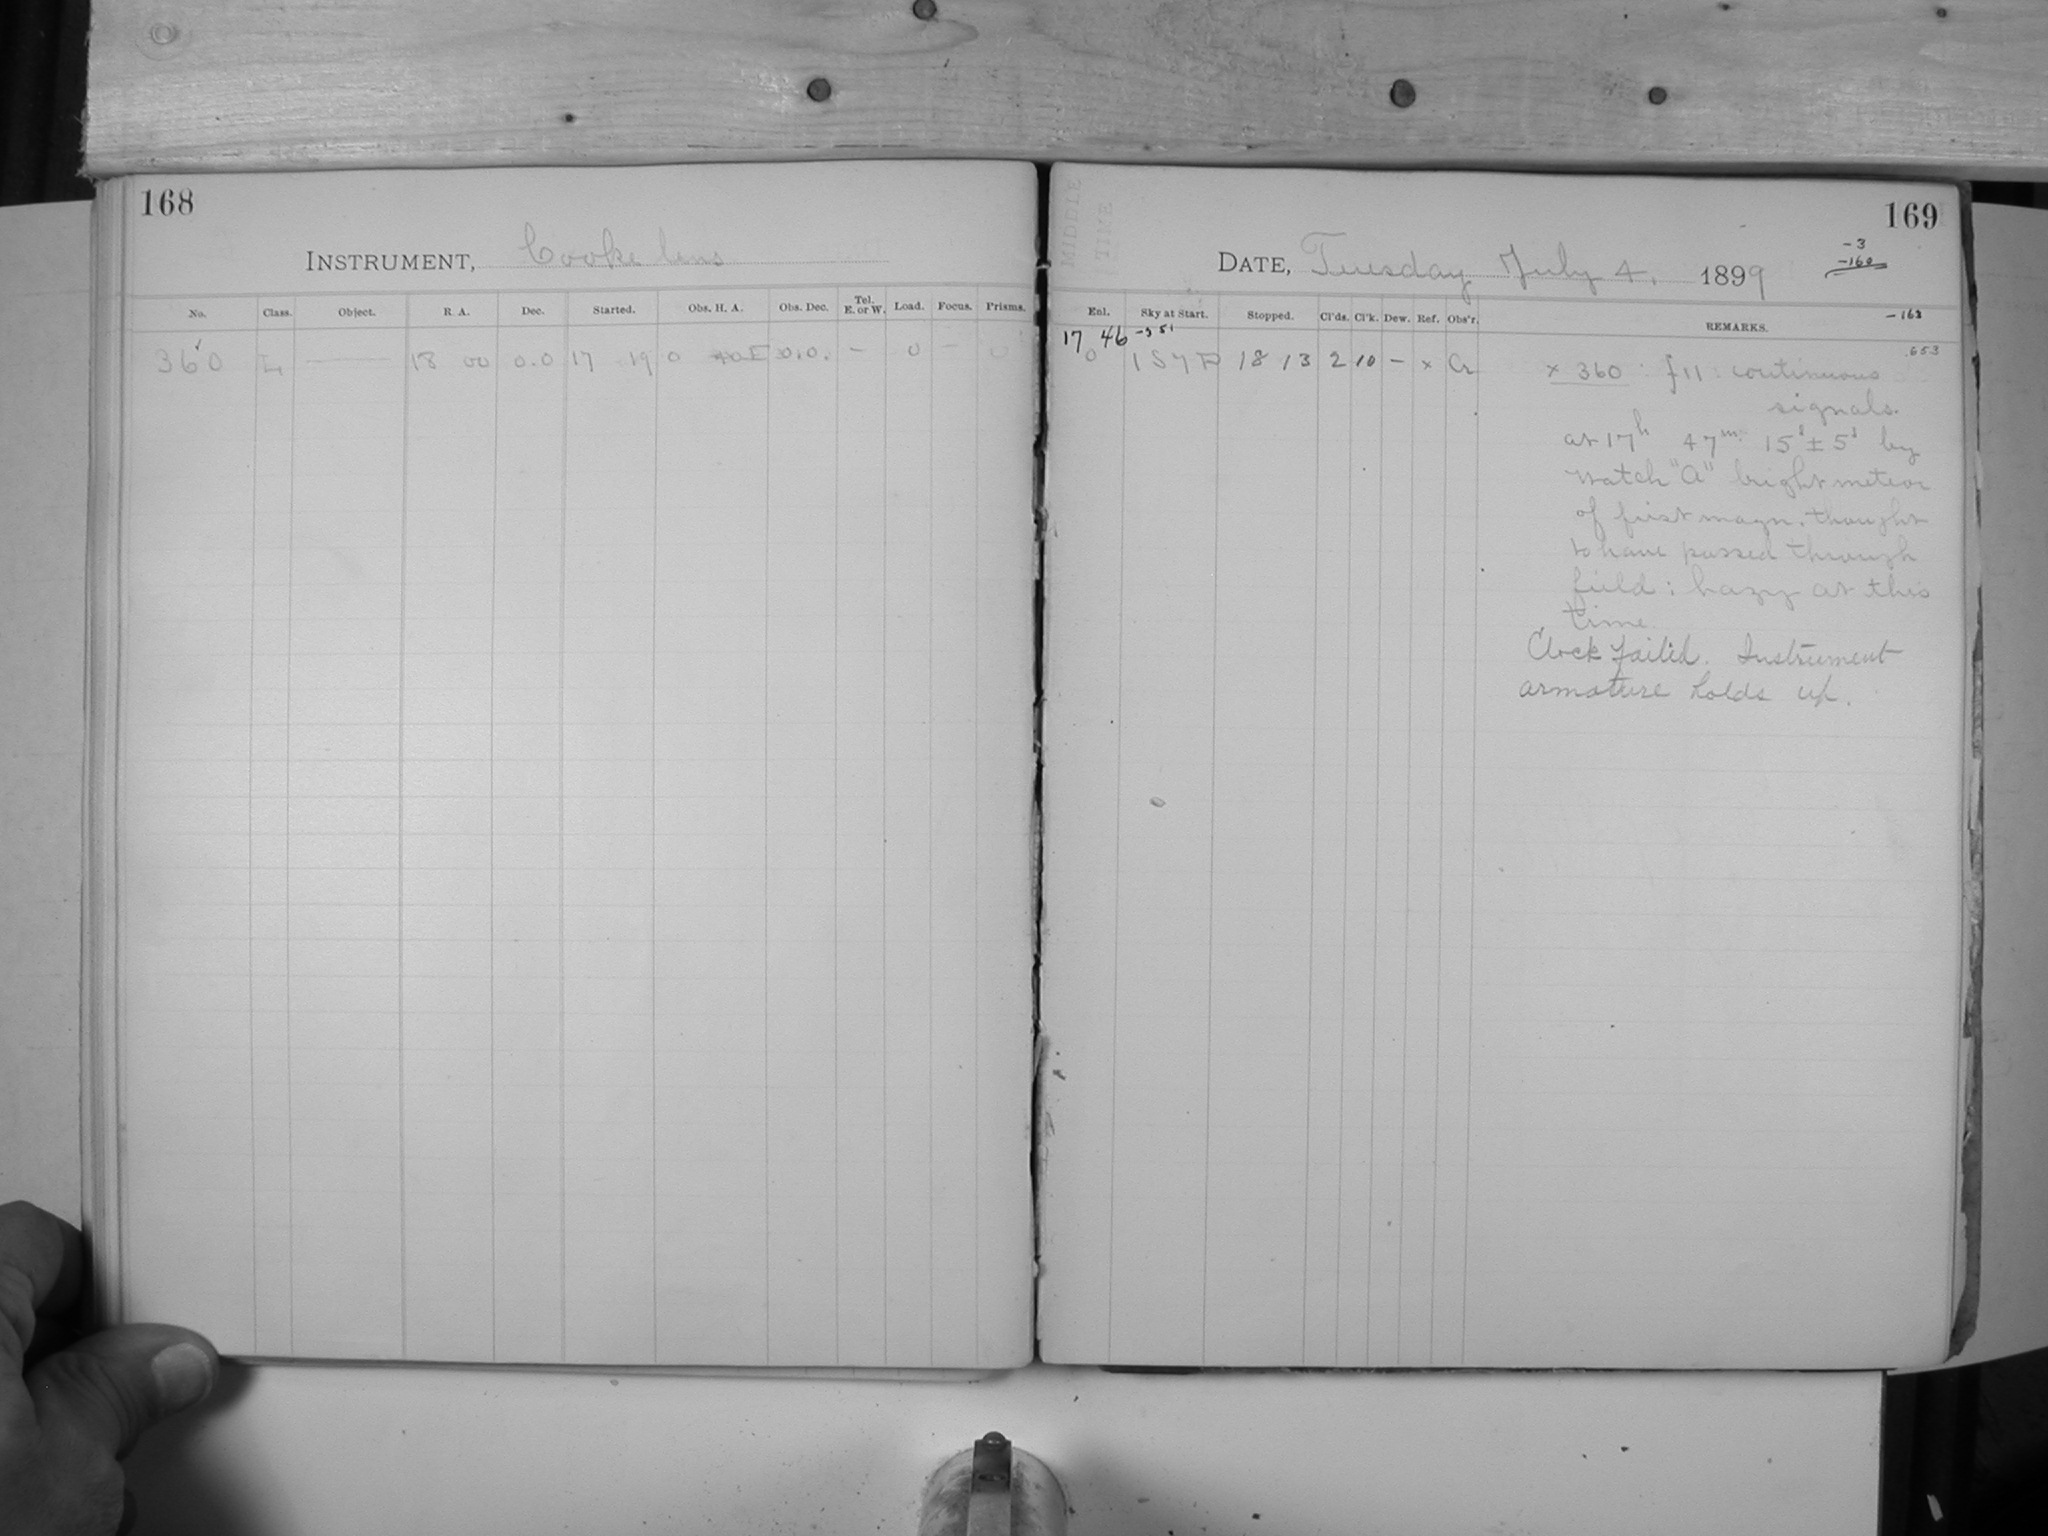 168
INSTRUMENT, Cooke lens
No. Class. Object. R. A. Dec. Started. Obs. H. A. Obs. Dec. Tel. E. or W. Load. Focus. Prisms.
360 L — 18 00 0.0 17 19 0 40E 0.0. - 0 - 0
MIDDLE
TIME
169
DATE, Tuesday July 4, 1899
-3
-160
-163
Enl. Sky at Start. Stopped. Cl'ds. Cl'k. Dew. Ref. Obs'r. REMARKS.
17 46 -3 51
.653
0 1 S 7 P 18 13 2 10 - x Cr
x 360 : f 11 : continuous
signals.
at 17h 47m 15s ± 5s by
watch "A" bright meteor
of first magn. thought
to have passed through
field : hazy at this
time.
Clock failed. Instrument
armature holds up.